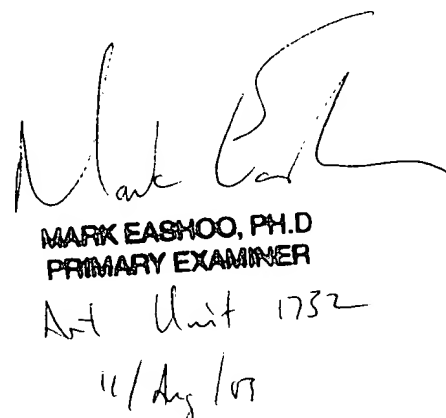 Mark
MARK EASHOO, PH.D
PRIMARY EXAMINER
Art Unit 1732
11/Aug/03